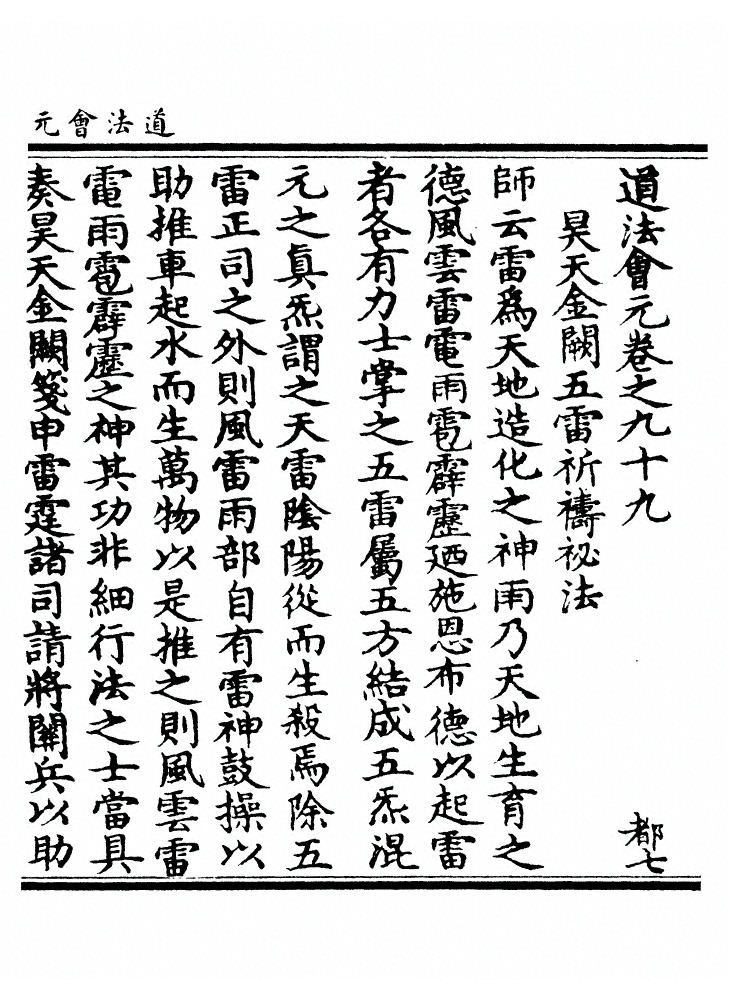 道法會元
道法會元卷之九十九
都七
昊天金闕五雷祈禱祕法
師云雷爲天地造化之神雨乃天地生育之
德風雲雷電雨雹霹靂廼施恩布德以起雷
者各有力士掌之五雷屬五方結成五炁混
元之眞炁謂之天雷陰陽從而生殺焉除五
雷正司之外則風雷雨部自有雷神鼓操以
助推車起水而生萬物以是推之則風雲雷
電雨雹霹靂之神其功非細行法之士當具
奏昊天金闕箋申雷霆諸司請將關兵以助